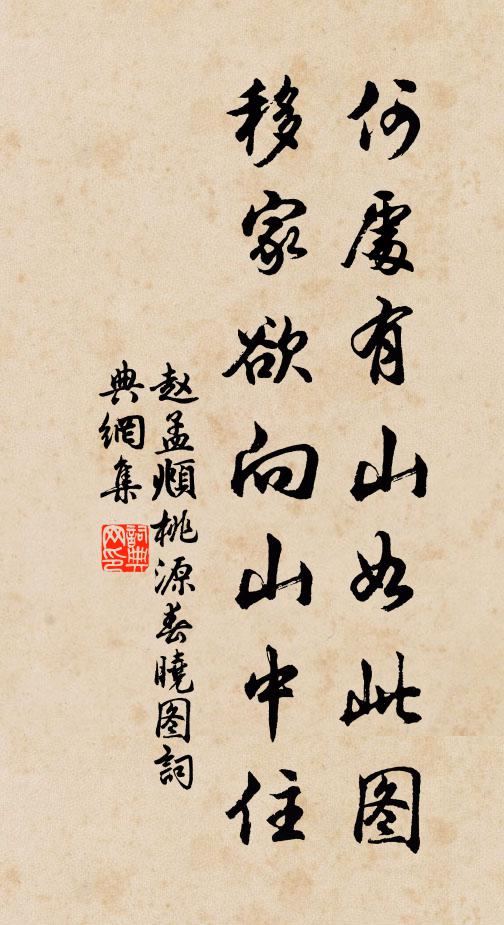 何處有山如此图
移家欲向山中住
赵孟頫桃源春曉图詞
典網集
詞典網印